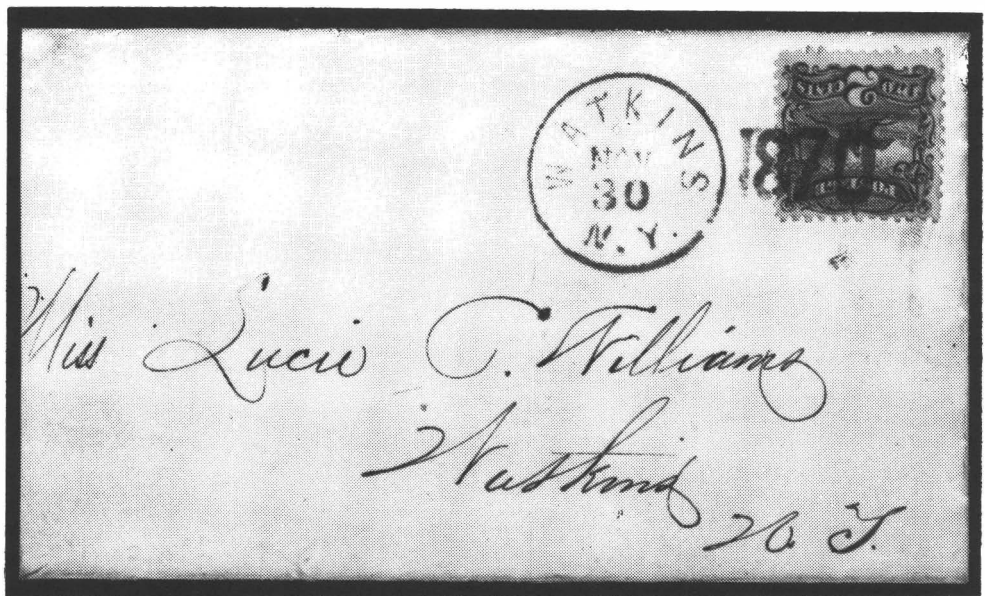 WATKINS
NOV
30
N.Y.
1870
Miss Lucie C. Williams
Watkins
N. Y.